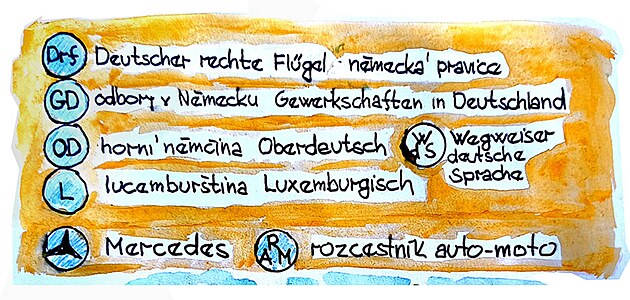 Drf Deutscher rechte Flügel německá pravice
GD odbory v Německu Gewerkschaften in Deutschland
OD horní němčina Oberdeutsch
WdS Wegweiser
deutsche
Sprache
L lucemburština Luxemburgisch
Mercedes
RAM rozcestník auto-moto